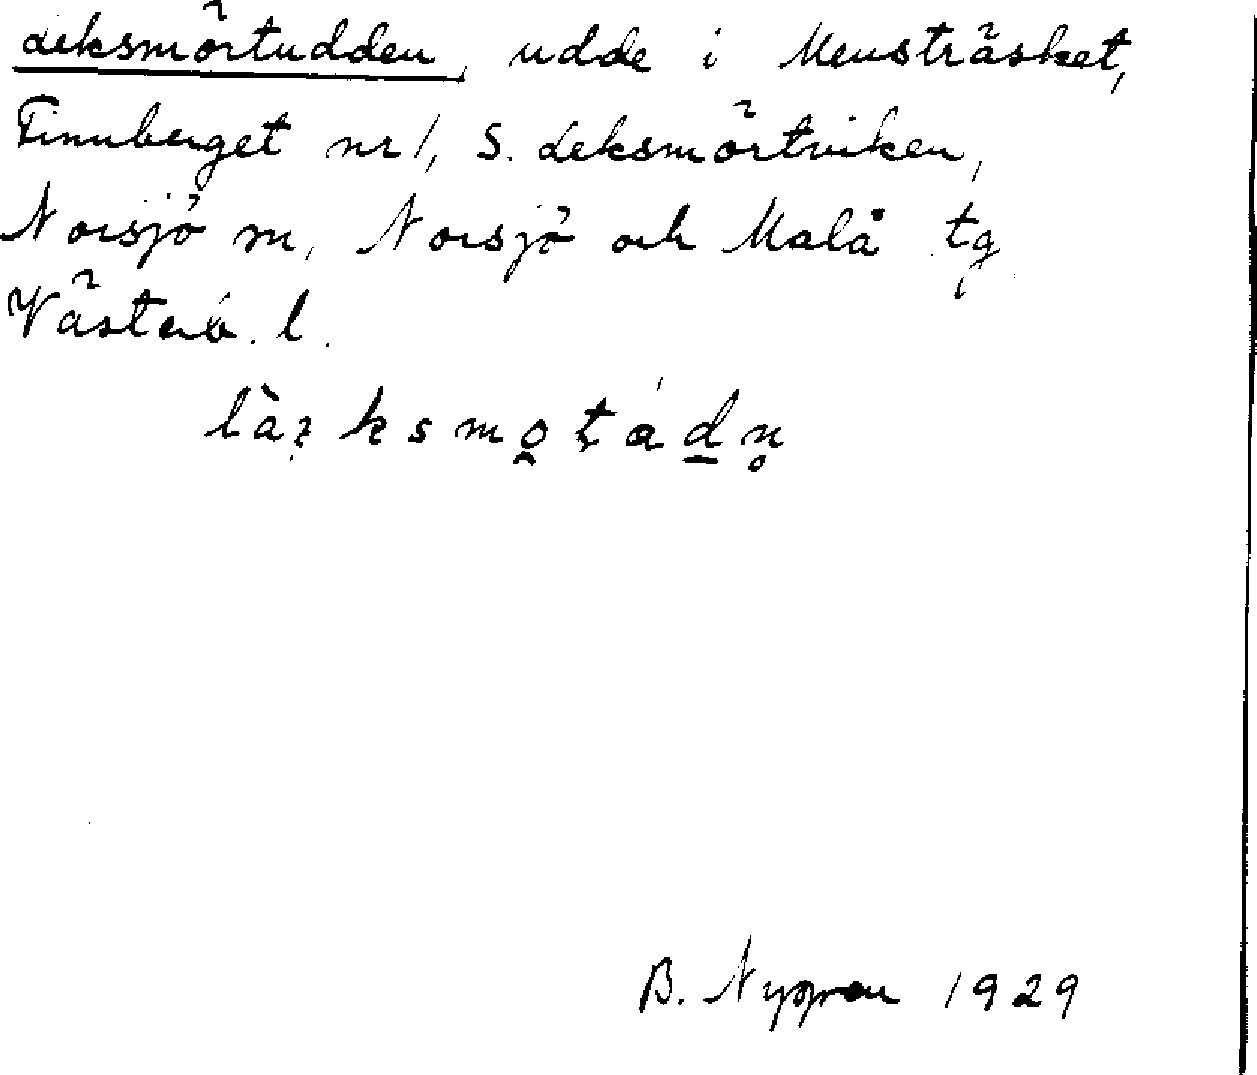 Leksmörtudden, udde i Mensträsket,
Finnberget nr 1, S. Leksmörtviken,
Norsjö sn, Norsjö och Malå tg
Västerb. l.
B. Nygren 1929